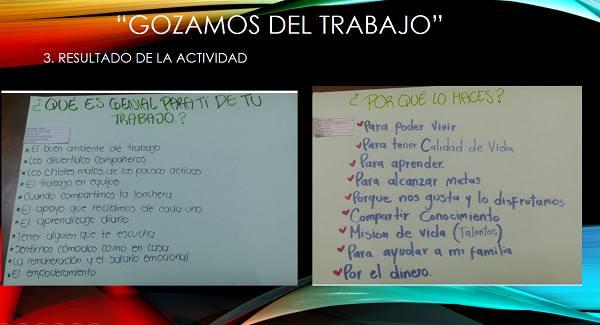 “GOZAMOS DEL TRABAJO”
3. RESULTADO DE LA ACTIVIDAD
¿QUÉ ES GENIAL PARA TI DE TU
TRABAJO?
El buen ambiente de trabajo
Los divertidos compañeros
Los chistes malos de las pausas activas
El trabajo en equipo
Cuando compartimos la lonchera
El apoyo que recibimos de cada uno
El aprendizaje diario
Tener alguien que te escucha
Sentirnos cómodos como en casa
La remuneración y el salario emocional
El empoderamiento
¿POR QUÉ LO HACES?
Para poder vivir
Para tener Calidad de Vida
Para aprender.
Para alcanzar metas
Porque nos gusta y lo disfrutamos
Compartir Conocimiento
Mision de vida (Talentos)
Para ayudar a mi familia
Por el dinero.